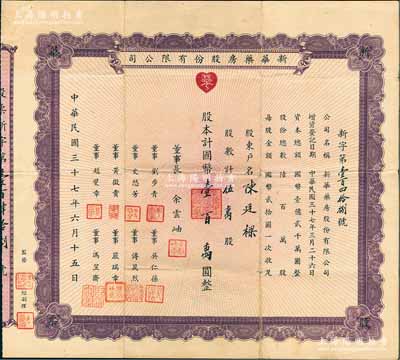 新華藥房股份有限公司
新字第壹百四拾捌號
公司名稱 新華藥房股份有限公司
增資登記日期 中華民國三十七年三月二十六日
資本總額 國幣壹億貳千萬圓整
股份總數 陸百萬股
每股金額 國幣貳拾圓一次收足
股東戶名 陳廷樑
股數計 伍萬 股
股本計國幣 壹百萬 圓整
董事長 余雲岫
董事 劉步青
董事 吳仁葆
董事
董事
董事 黃
董事 嚴瑞章
董事 趙燮章
董事 馮
中華民國三十七年六月十五日